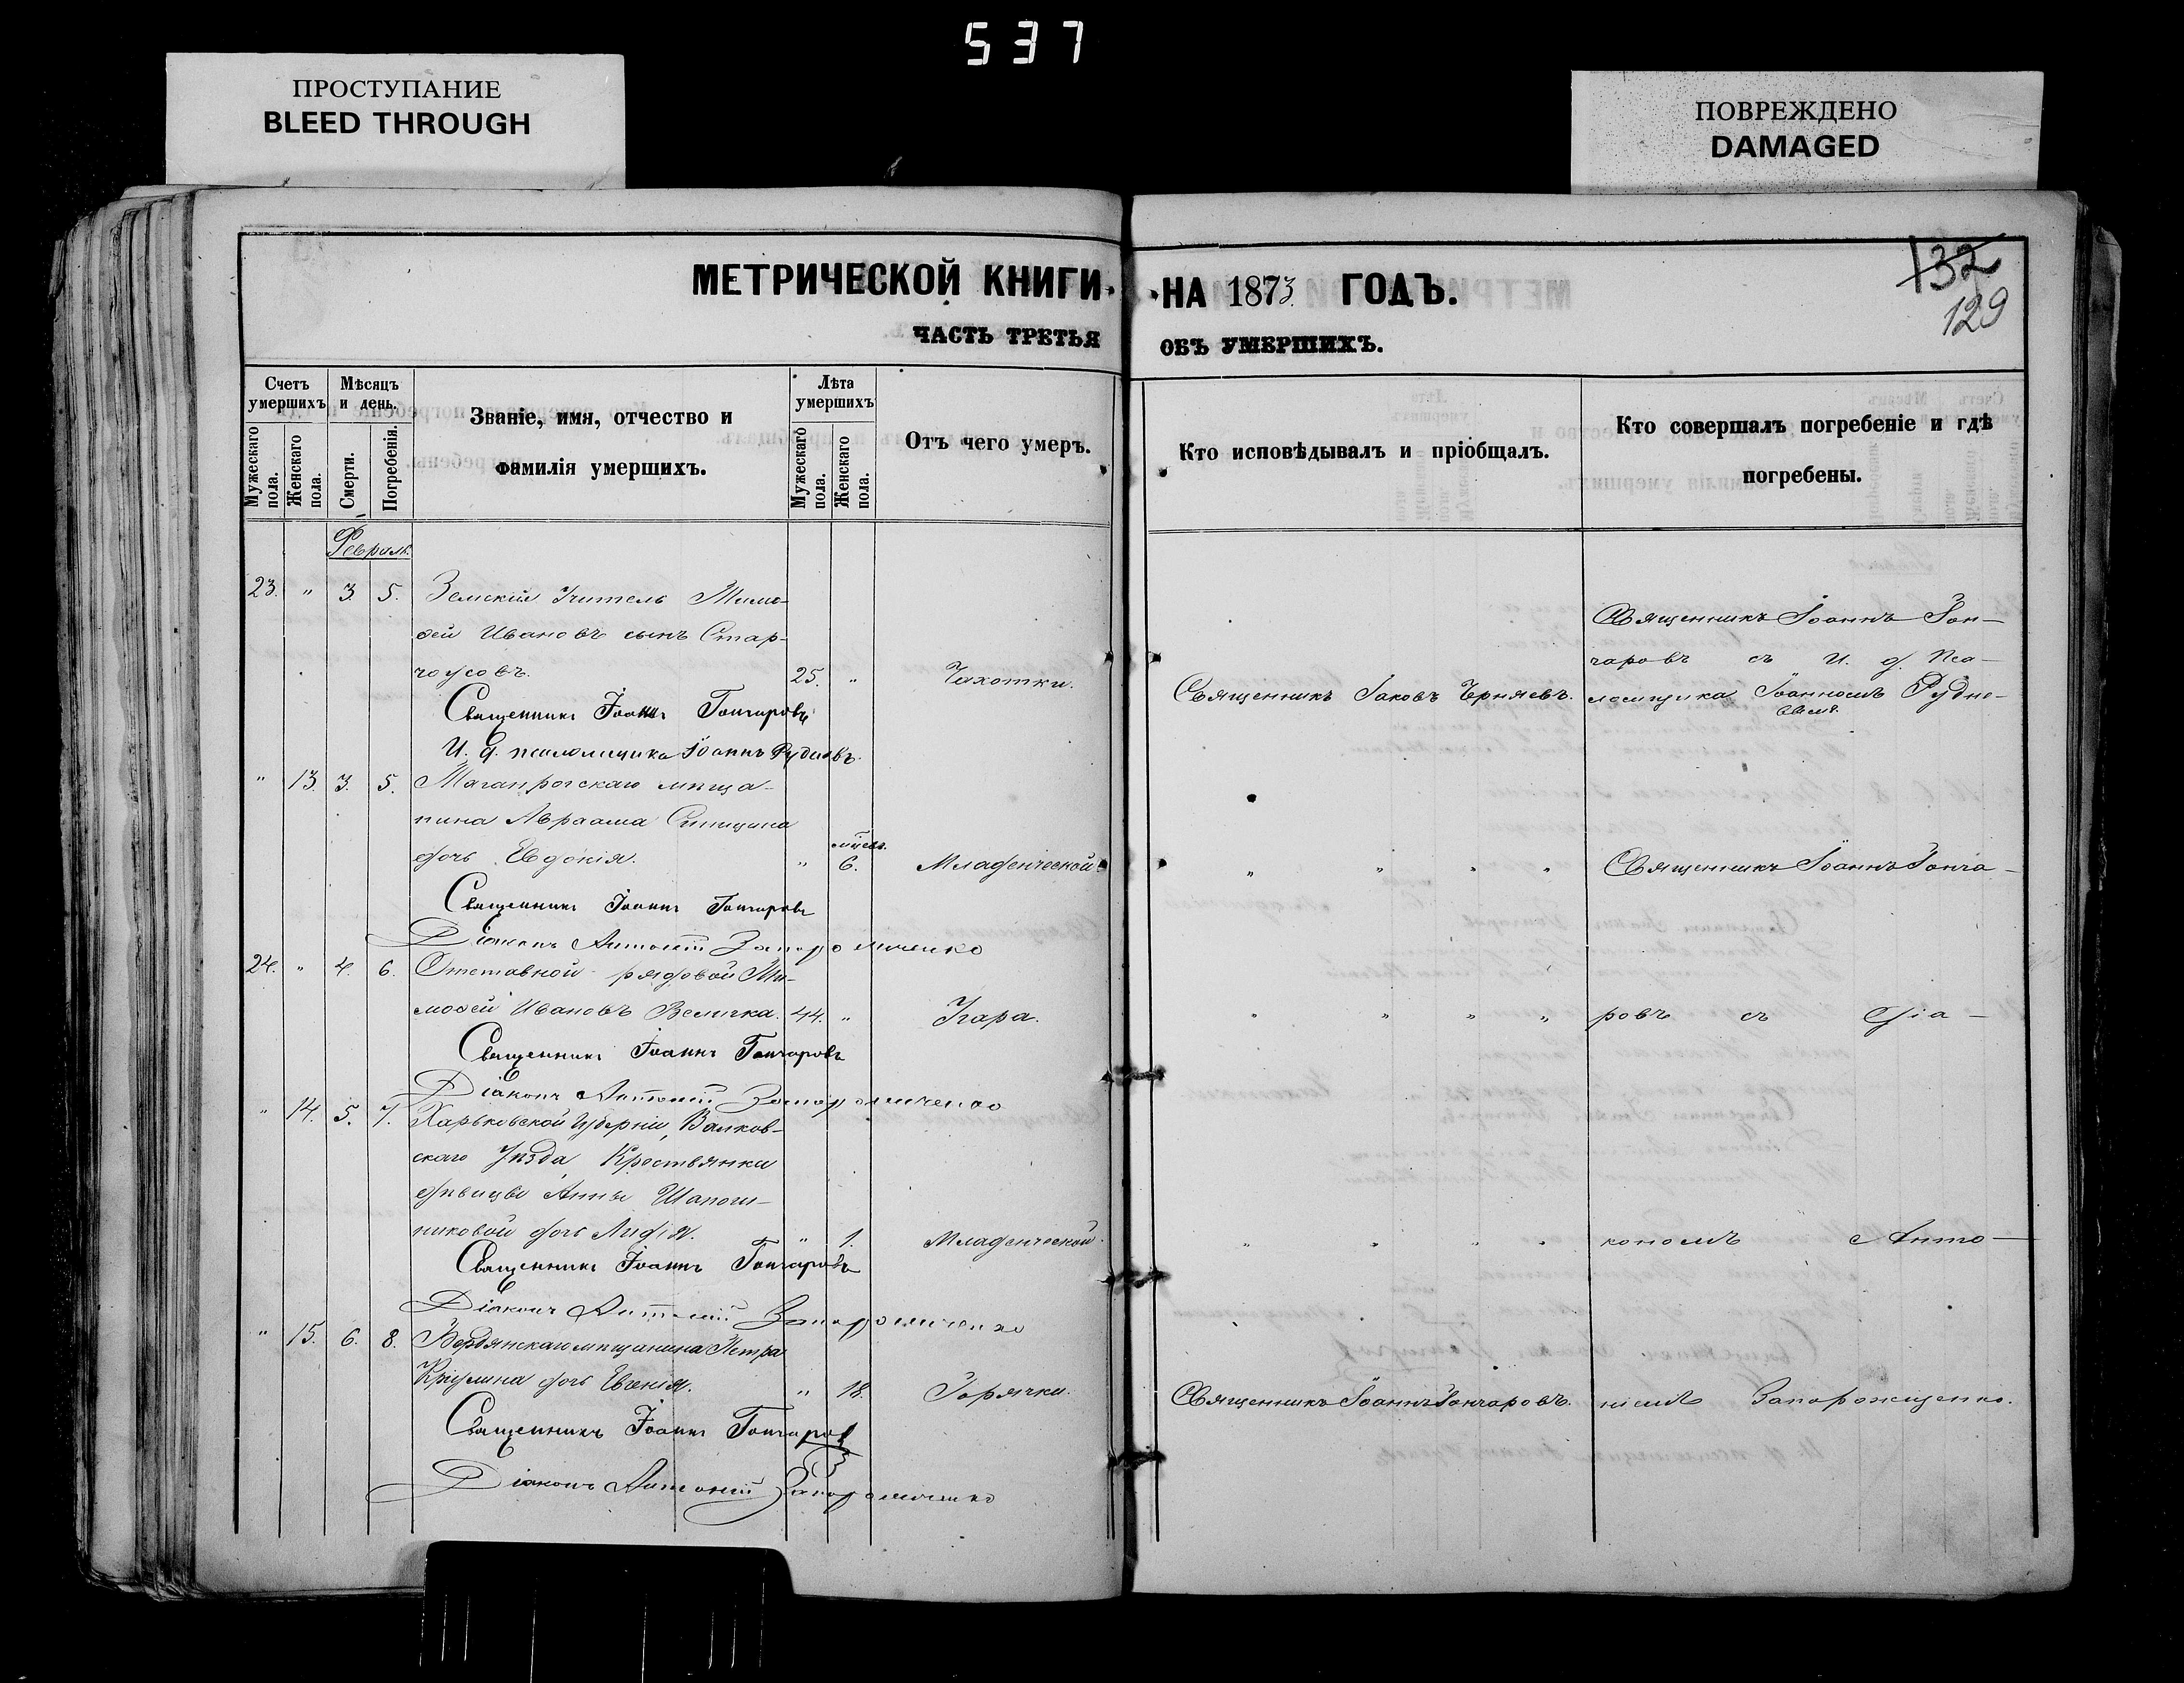 537
ПРОСТУПАНИЕ
BLEED THROUGH
ПОВРЕЖДЕНО
DAMAGED
МЕТРИЧЕСКОЙ КНИГИ
ЧАСТЬ ТРЕТЬЯ
Счетъ умершихъ
Мужескаго пола.
Женскаго пола.
Мѣсяцъ и день.
Смерти.
Погребенія.
Званіе, имя, отчество и
фамилія умершихъ.
Лѣта умершихъ
Мужескаго пола.
Женскаго пола.
Отъ чего умеръ.
Февраль.
23. " 3. 5. Земскій Учитель Тимо-
ѳей Ивановъ сынъ Стар-
чоусовъ. 25. " Чахотки.
Священникъ Іоаннъ Гончаровъ
И. д. псаломщика Іоаннъ Рудневъ.
" 13. 3. 5. Таганрогскаго мѣща-
нина Авраама Спицина
дочь Евдокія. " мѣсяц. 6. Младенческой.
Священникъ Іоаннъ Гончаровъ
Діаконъ Антоній Запорожченко
24. " 4. 6. Отставной рядовой Ти-
моѳей Ивановъ Величка. 44. " Угара.
Священникъ Іоаннъ Гончаровъ
Діаконъ Антоній Запорожченко
" 14. 5. 7. Харьковской Губерніи, Валков-
скаго Уѣзда, Крестьянки
дѣвицы Анны Шапош-
никовой дочь Лидія. " 1. Младенческой.
Священникъ Іоаннъ Гончаровъ
Діаконъ Антоній Запорожченко
" 15. 6. 8. Бердянскаго мѣщанина Петра
дочь Евгенія. " 18. Горячки.
Священникъ Іоаннъ Гончаров
Діаконъ Антоній Запорожченко
НА 1873. ГОДЪ.
ОБЪ УМЕРШИХЪ.
132
129
Кто исповѣдывалъ и пріобщалъ.
Кто совершалъ погребеніе и гдѣ
погребены.
Священникъ Іоаннъ Гон-
чаровъ съ И. д. Пса-
Священникъ Іаковъ Черняевъ. ломщика Іоанномъ Рудне-
вымъ.
" " " " Священникъ Іоаннъ Гонча-
" " " " ровъ съ діа-
" " " " кономъ Анто-
Священникъ Іоаннъ Гончаровъ. ніемъ Запорожщенко.